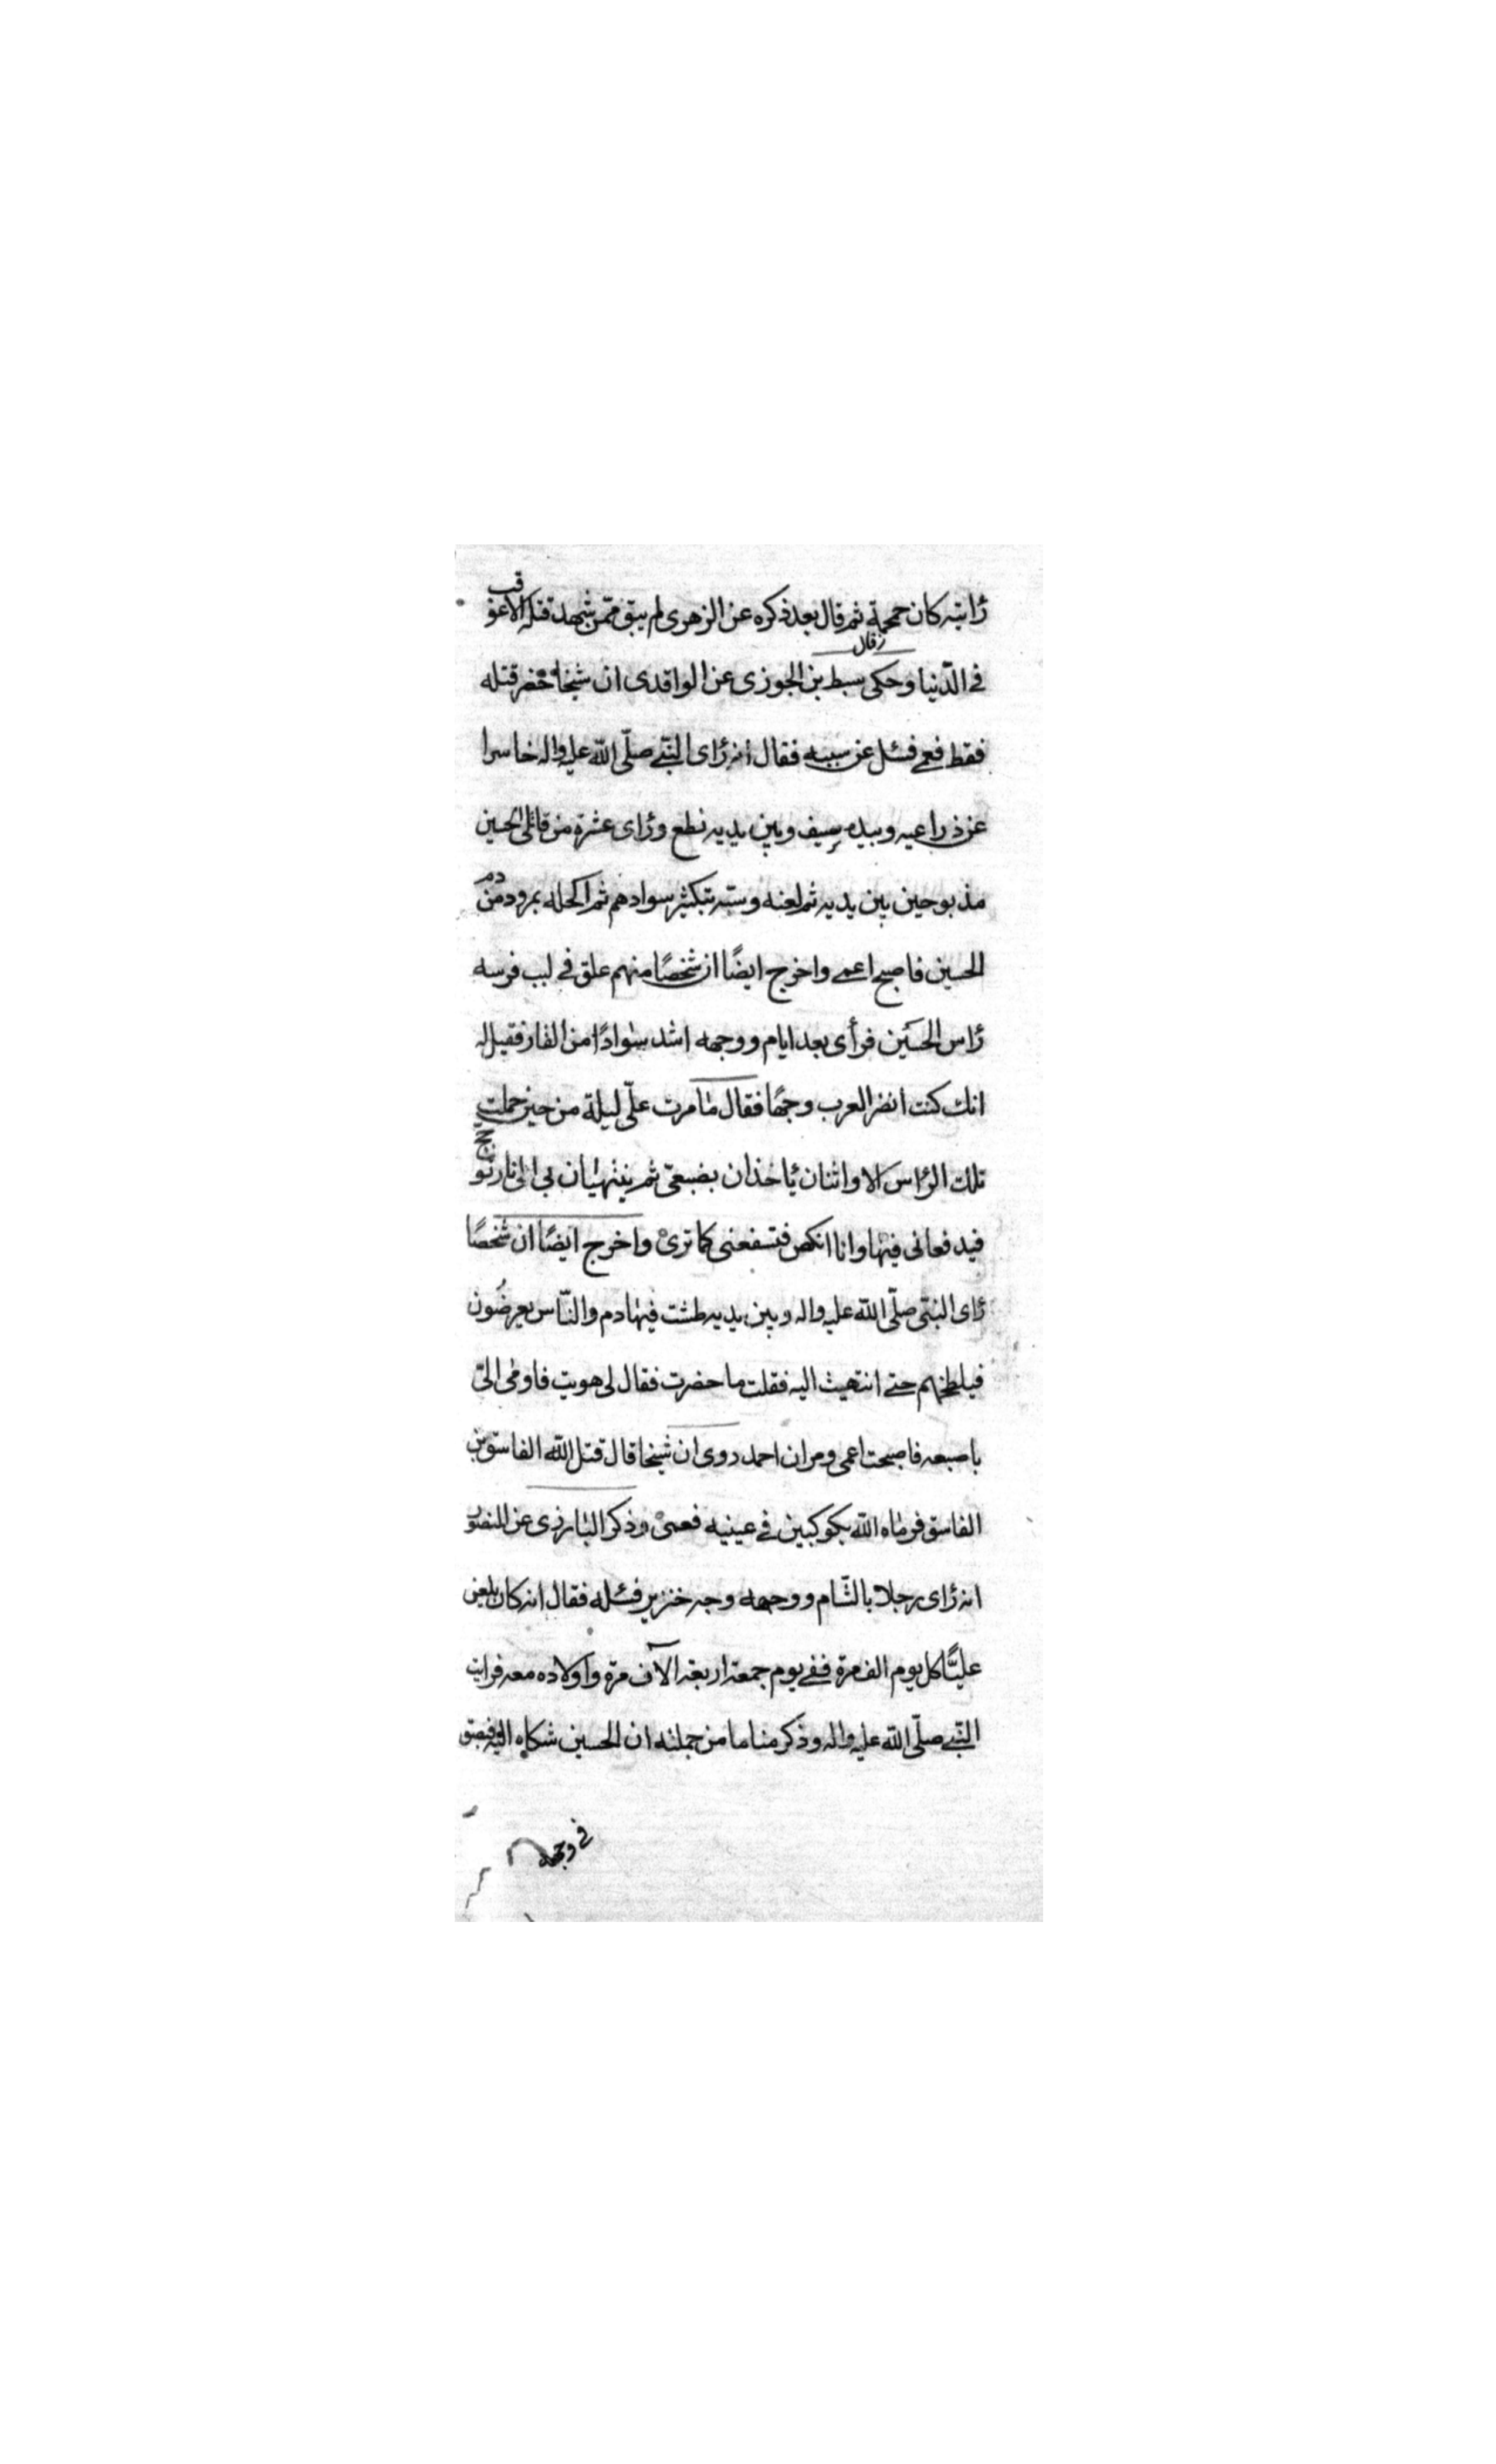 رأيته كان حممة ثم قال بعد ذكره عن الزهرى لم يبق ممن شهد قتله الا عوقب
فى الدّنيا وقال وحكى سبط بن الجوزى عن الواقدى ان شيخا حضر قتله
فقط فعمى فسئل عن سببه فقال انه رأى النبى صلّى الله عليه واله خاسرا
عن ذراعيه وبيده سيف وبين يديه نطع ورأى عشرة من قاتلى الحسين
مذبوحين بين يديه ثم لعنه وسبّه بتكثير سوادهم ثم اكحله بمرود من دم
الحسين فاصبح اعمى واخرج ايضًا ان شخصًا منهم علق فى لبب فرسه
رأس الحسين فرأى بعد ايام ووجهه اشد سوادًا من القار فقيل له
انك كنت انضر العرب وجهًا فقال ما مرت علىّ ليلة من حين حملت
تلك الرأس الا واثنان يأخذان بضبعى ثم ينتهيان بى الى نار تؤجج
فيدفعانى فيها وانا انكص فتسفعنى كما ترى واخرج ايضًا ان شخصًا
رأى النبى صلّى الله عليه واله وبين يديه طشت فيها دم والنّاس يعرضون
فيلطخهم حتى انتهيت اليه فقلت ما حضرت فقال لى هويت فاومى الىّ
باصبعه فاصبحت اعمى ومر ان احمد روى ان شيخا قال قتل الله الفاسق بن
الفاسق فرماه الله بكوكبين فى عينيه فعمى وذكر البارزى عن المنصور
انه رأى رجلا بالشّام ووجهه وجه خنزير فسئله فقال انه كان يلعن
عليًّا كل يوم الف مرة ففى يوم جمعة اربعة الآف مرة واولاده معه فرايت
النبى صلّى الله عليه واله وذكر مناما من جملته ان الحسين شكاه اليه فبصق
فى وجهه